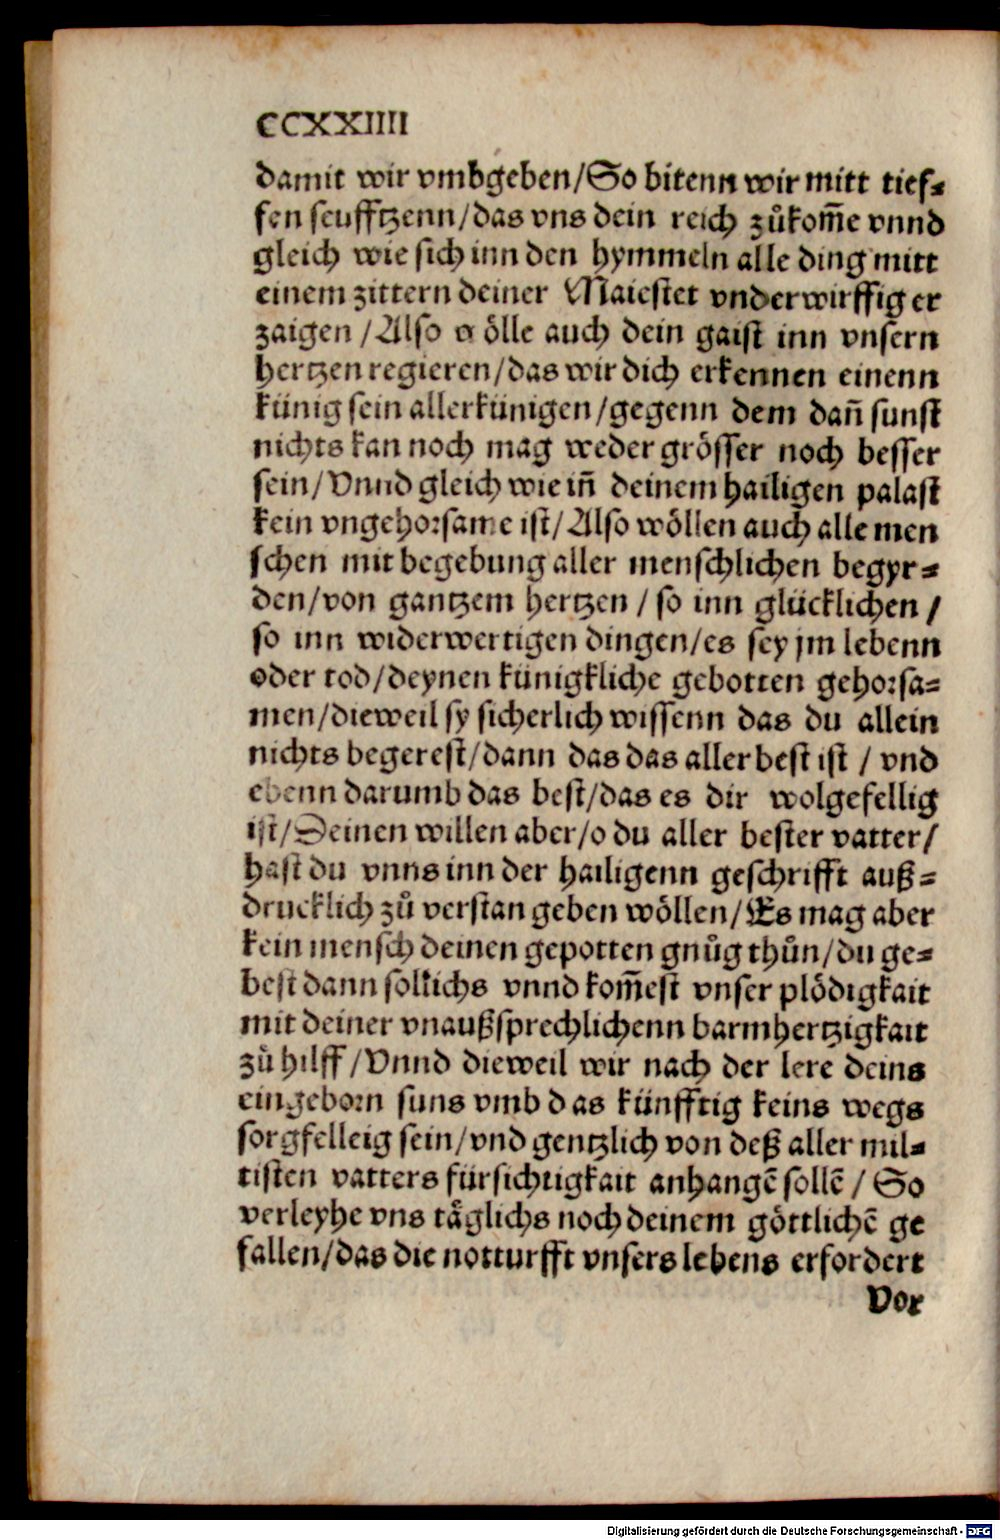 CCXXIIII
damit wir vmbgeben/So bitenn wir mitt tief⸗
fen seufftzenn/das vns dein reich zůkom̄e vnnd
gleich wie sich inn den hymmeln alle ding mitt
einem zittern deiner Maiestet vnderwirffig er
zaigen /Also wölle auch dein gaist inn vnsern
hertzen regieren/das wir dich erkennen einenn
künig sein allerkünigen/gegenn dem dan̄ sunst
nichts kan noch mag weder grösser noch besser
sein/Vnnd gleich wie in̄ deinem hailigen palast
kein vngehorsame ist/Also wöllen auch alle men
schen mit begebung aller menschlichen begyr⸗
den/von gantzem hertzen / so inn glücklichen /
so inn widerwertigen dingen/es sey jm lebenn
oder tod/deynen künigkliche gebotten gehorsa⸗
men/dieweil sy sicherlich wissenn das du allein
nichts begerest/dann das das aller best ist / vnd
ebenn darumb das best/das es dir wolgefellig
ist/Deinen willen aber/o du aller bester vatter/
hast du vnns inn der hailigenn geschrifft auß⸗
drucklich zů verstan geben wöllen/Es mag aber
kein mensch deinen gepotten gnůg thůn/du ge⸗
best dann solkichs vnnd kom̄est vnser plödigkait
mit deiner vnaußsprechlichenn barmhertzigkait
zů hilff /Vnnd dieweil wir nach der lere deins
eingeborn suns vmb das künfftig keins wegs
sorgfelleig sein/vnd gentzlich von deß aller mil⸗
tisten vatters fürsichtigkait anhangē sollē / So
verleyhe vns täglichs noch deinem göttlichē ge
fallen/das die notturfft vnsers lebens erfordert
Vor
Digitalisierung gefördert durch die Deutsche Forschungsgemeinschaft - DFG